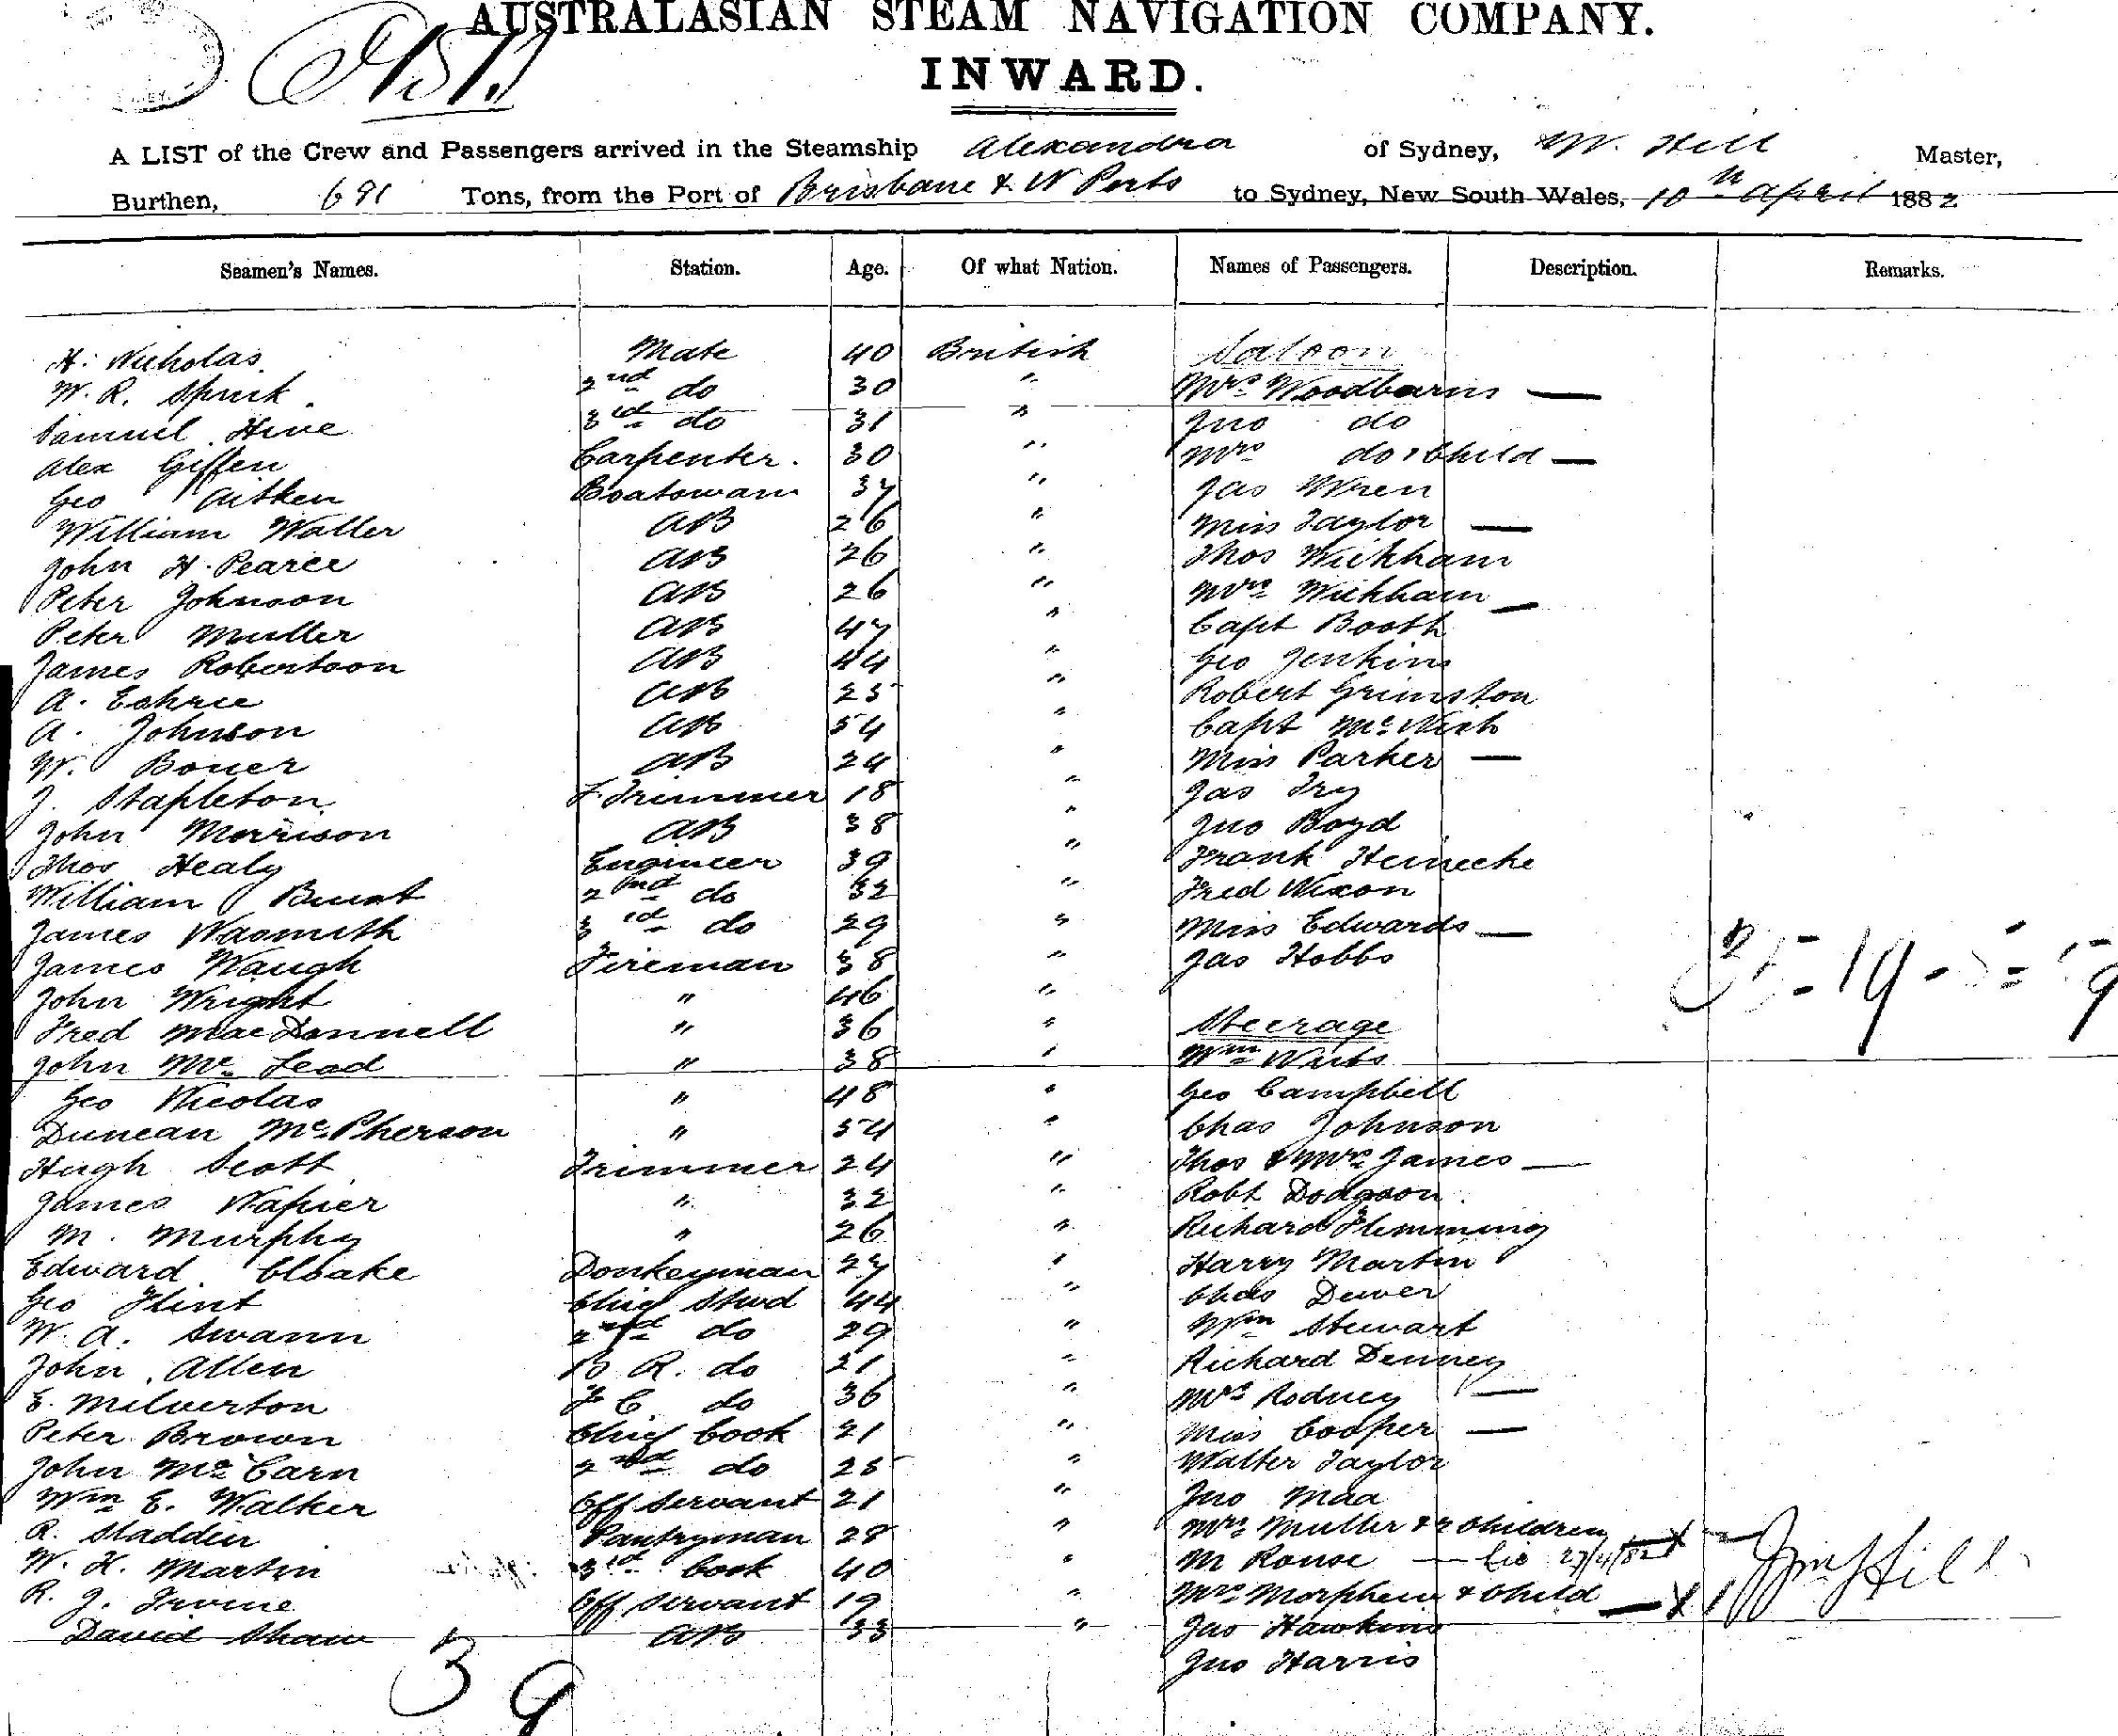 AUSTRALASIAN STEAM NAVIGATION COMPANY.
INWARD.
A LIST of the Crew and Passengers arrived in the Steamship Alexandra of Sydney, W. Hill Master,
Burthen, 691 Tons, from the Port of Brisbane & W Ports to Sydney, New South Wales, 10th April 1882
Seamen's Names. Station. Age. Of what Nation. Names of Passengers. Description. Remarks.
H. Nicholas. Mate 40 British Saloon
W. R. 2nd do 30 " Mrs —
Samuel Hine 3rd do 31 " Jno do
Alex Giffen Carpenter. 30 " Mrs do & Child —
Geo Aitken Boatswain 37 " Jas Wren
William Waller AB 26 " Miss Taylor —
John H. Pearce AB 26 " Thos Wickham
Peter Johnson AB 26 " Mrs Wickham —
Peter Muller AB 47 " Capt Booth
James Robertson AB 44 " Geo Jenkins
A. AB 25 " Robert Grimston
A. Johnson AB 54 " Capt
W. Boner AB 24 " Miss Parker —
J. Stapleton F. Trimmer 18 " Jas Try
John Morrison AB 38 " Jno Boyd
Thos Healy Engineer 39 " Frank Heinecke
William 2nd do 32 " Fred Nixon
James Wasmuth 3rd do 29 " Miss Edwards —
James Waugh Fireman 38 " Jas Hobbs
John Wright " 46 "
Fred MacDonnell " 36 " Steerage
John Mc Leod " 38 " Wm
Geo Nicolas " 48 " Geo Campbell
Duncan McPherson " 54 " Chas Johnson
Hugh Scott Trimmer 24 " Thos & Mrs James —
James Napier " 32 " Robt Dodgson.
M. Murphy " 26 " Richard Flemming
Edward Cloake Donkeyman 27 " Harry Martin
Geo Flint Chief Stwd 44 " Chas Dewer
W. A. Swann 2nd do 29 " Wm Stewart
John Allen B R. do 21 " Richard Denney
E. Milverton F C do 36 " Mrs Rodney —
Peter Brown Chief Cook 21 " Miss Cooper —
John Mc Carn 2nd do 25 " Walter Taylor
Wm E. Walker Off Servant 21 " Jno Maa
R. Sladden Pantryman 28 " Mrs Muller & 2 Children
W. H. Martin 3rd Cook 40 " M Rouse — 27/4/82
R. J. Irvine Off Servant 19 " Mrs & Child —
David Shaw AB 33 " Jas Hawkins
Jno Harris
39